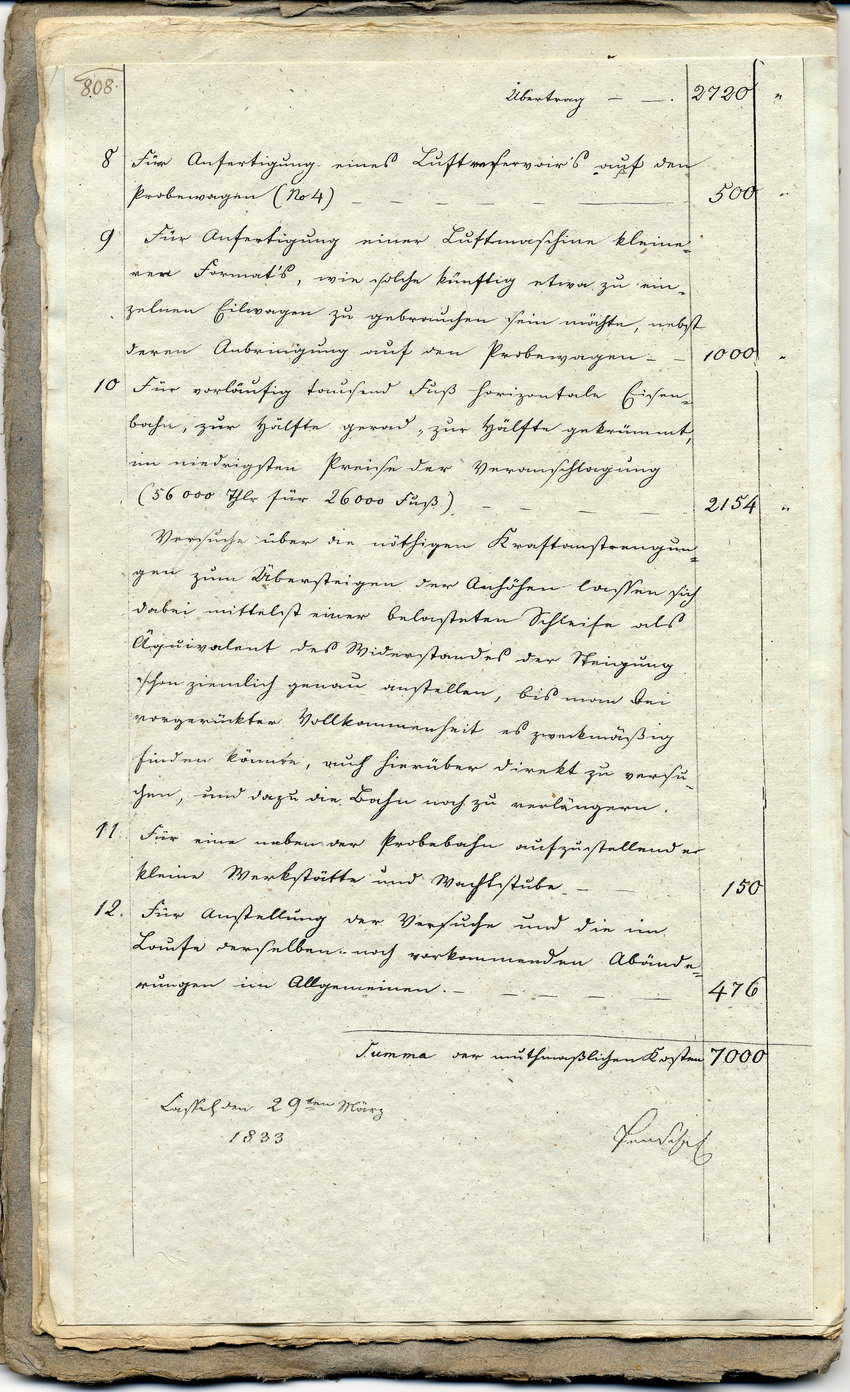 808.
Übertrag — —. 2720 "
8 Für Anfertigung eines Luftreservoir's auf den
Probewagen (No 4) — — — — 500 "
9 Für Anfertigung einer Luftmaschine kleine=
rer Format's, wie solche künftig etwa zu ein=
zelnen Eilwagen zu gebrauchen sein möchte, nebst
deren Anbringung auf den Probewagen — — 1000 "
10 Für vorläufig tausend Fuß horizontale Eisen=
bahn, zur Hälfte gerad, zur Hälfte gekrümmt,
im niedrigsten Preise der Veranschlagung
(56000 Thlr für 26000 Fuß) — — — — 2154 "
Versuche über die nöthigen Kraftanstrengun=
gen zum Übersteigen der Anhöhen lassen sich
dabei mittelst einer belasteten Schleife als
Äquivalent des Widerstandes der Steigung
schon ziemlich genau anstellen, bis man bei
vorgerückter Vollkommenheit es zweckmäßig
finden könnte, auch hierüber direkt zu versu=
chen, und dazu die Bahn noch zu verlängern.
11. Für eine neben der Probebahn aufzustellende
kleine Werkstätte und Wachtstube — — 150
12. Für Anstellung der Versuche und die im
Laufe derselben noch vorkommenden Abände=
rungen im Allgemeinen. — — — — — 476
Summa der muthmaßlichen Kosten 7000
Cassel, den 29ten März
1833
Henschel